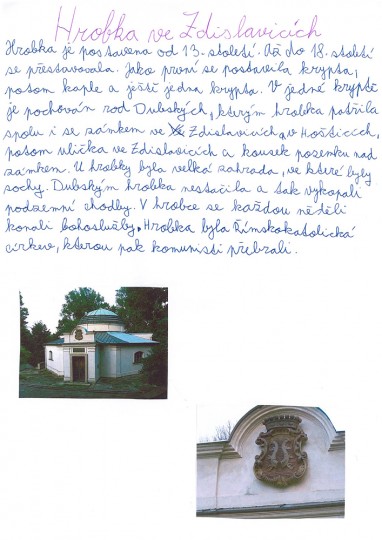 Hrobka ve Zdislavicích
Hrobka je postavena od 13. století. Až do 18. století
se přestavovala. Jako první se postavila krypta,
potom kaple a ještě jedna krypta. V jedné kryptě
je pochován rod Dubských, kterým hrobka patřila
spolu i se zámkem ve Zdislavicích, v Hošticích,
potom ulička ve Zdislavicích a kousek pozemku nad
zámkem. U hrobky byla velká zahrada, ve které byly
sochy. Dubským hrobka nestačila a tak vykopali
podzemní chodby. V hrobce se každou neděli
konali bohoslužby. Hrobka byla Římskokatolická
církev, kterou pak komunisti přebrali.